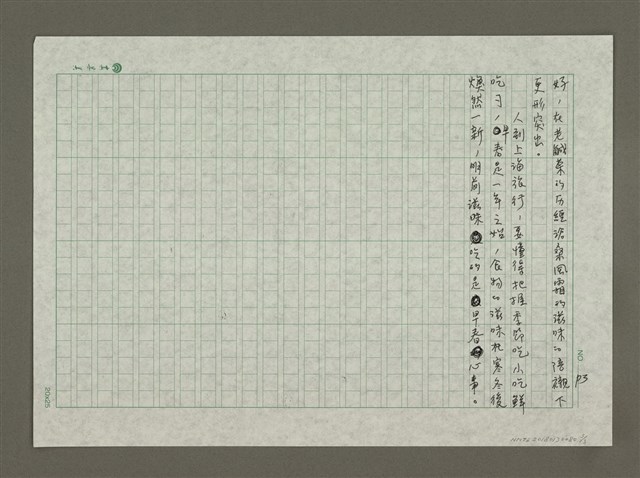 好，在老鹹菜的历經滄桑風霜的滋味的陪襯下
更形突出。
人到上海旅行，要懂得把握季節吃小吃鮮
吃刁，早春是一年之始，食物的滋味在寒冬後
煥然一新，明前滋味吃的是早春心事。
NO
P3
20x25